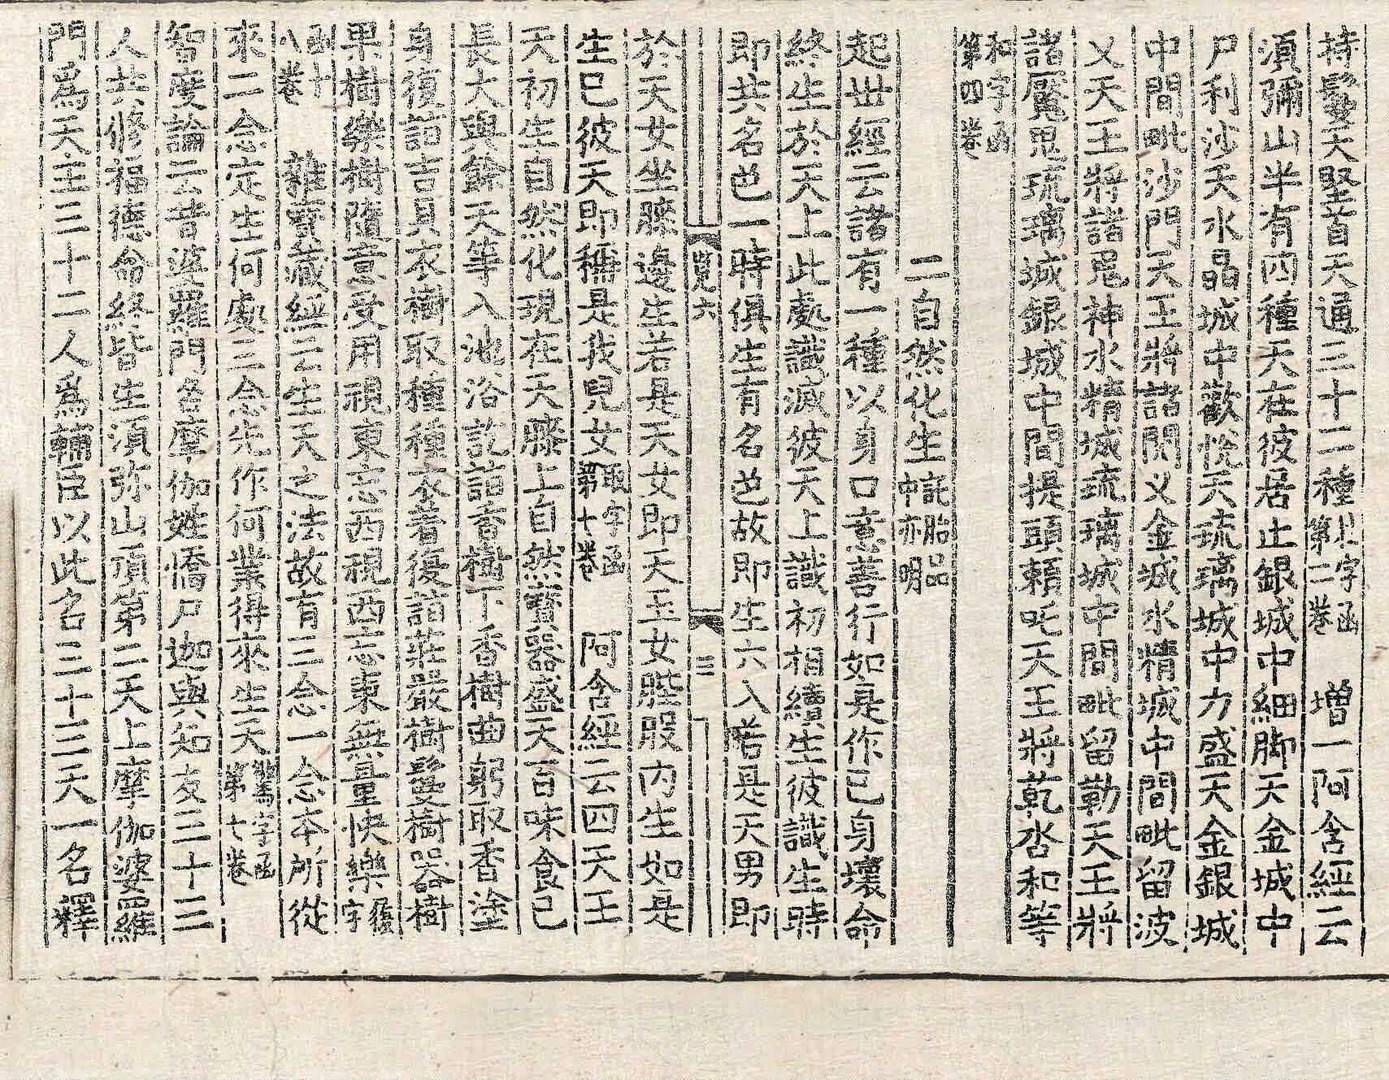 持鬘天堅首天通三十二種
第二卷
增一阿含經云
須彌山半有四種天在彼居止銀城中細脚天金城中
尸利沙天水晶城中歡悅天琉璃城中力盛天金銀城
中間毗沙門天王將諸閱叉金城水精城中間毗留波
叉天王將諸鬼神水精城琉璃城中間毗留勒天王將
諸魘鬼琉璃城銀城中間提頭賴吒天王將乾沓和等
和字函
第四卷
二自然化生
託胎品
中亦明
起世經云諸有一種以身口意善行如是作已身壞命
終生於天上此處識滅彼天上識初相續生彼識生時
即共名色一時俱生有名色故即生六入若是天男即
覽六
三
於天女坐膝邊生若是天女即天玉女䏶股內生如是
生已彼天即稱是我兒女
取字函
第七卷
阿含經云四天王
天初生自然化現在天膝上自然寶器盛天百味食已
長大與餘天等入池浴訖詣香樹下香樹曲躬取香塗
身復詣吉貝衣樹取種種衣著復詣莊嚴樹鬘樹器樹
果樹樂樹隨意受用視東忘西視西忘東無量快樂
字
函十
八卷
雜寶藏經云生天之法故有三念一念本所從
來二念定生何處三念先作何業得來生天
字函
第七卷
智度論云昔婆羅門名摩伽姓憍尸迦與知友三十三
人共修福德命終皆生須弥山頂第二天上摩伽婆羅
門爲天主三十二人爲輔臣以此名三十三天一名釋